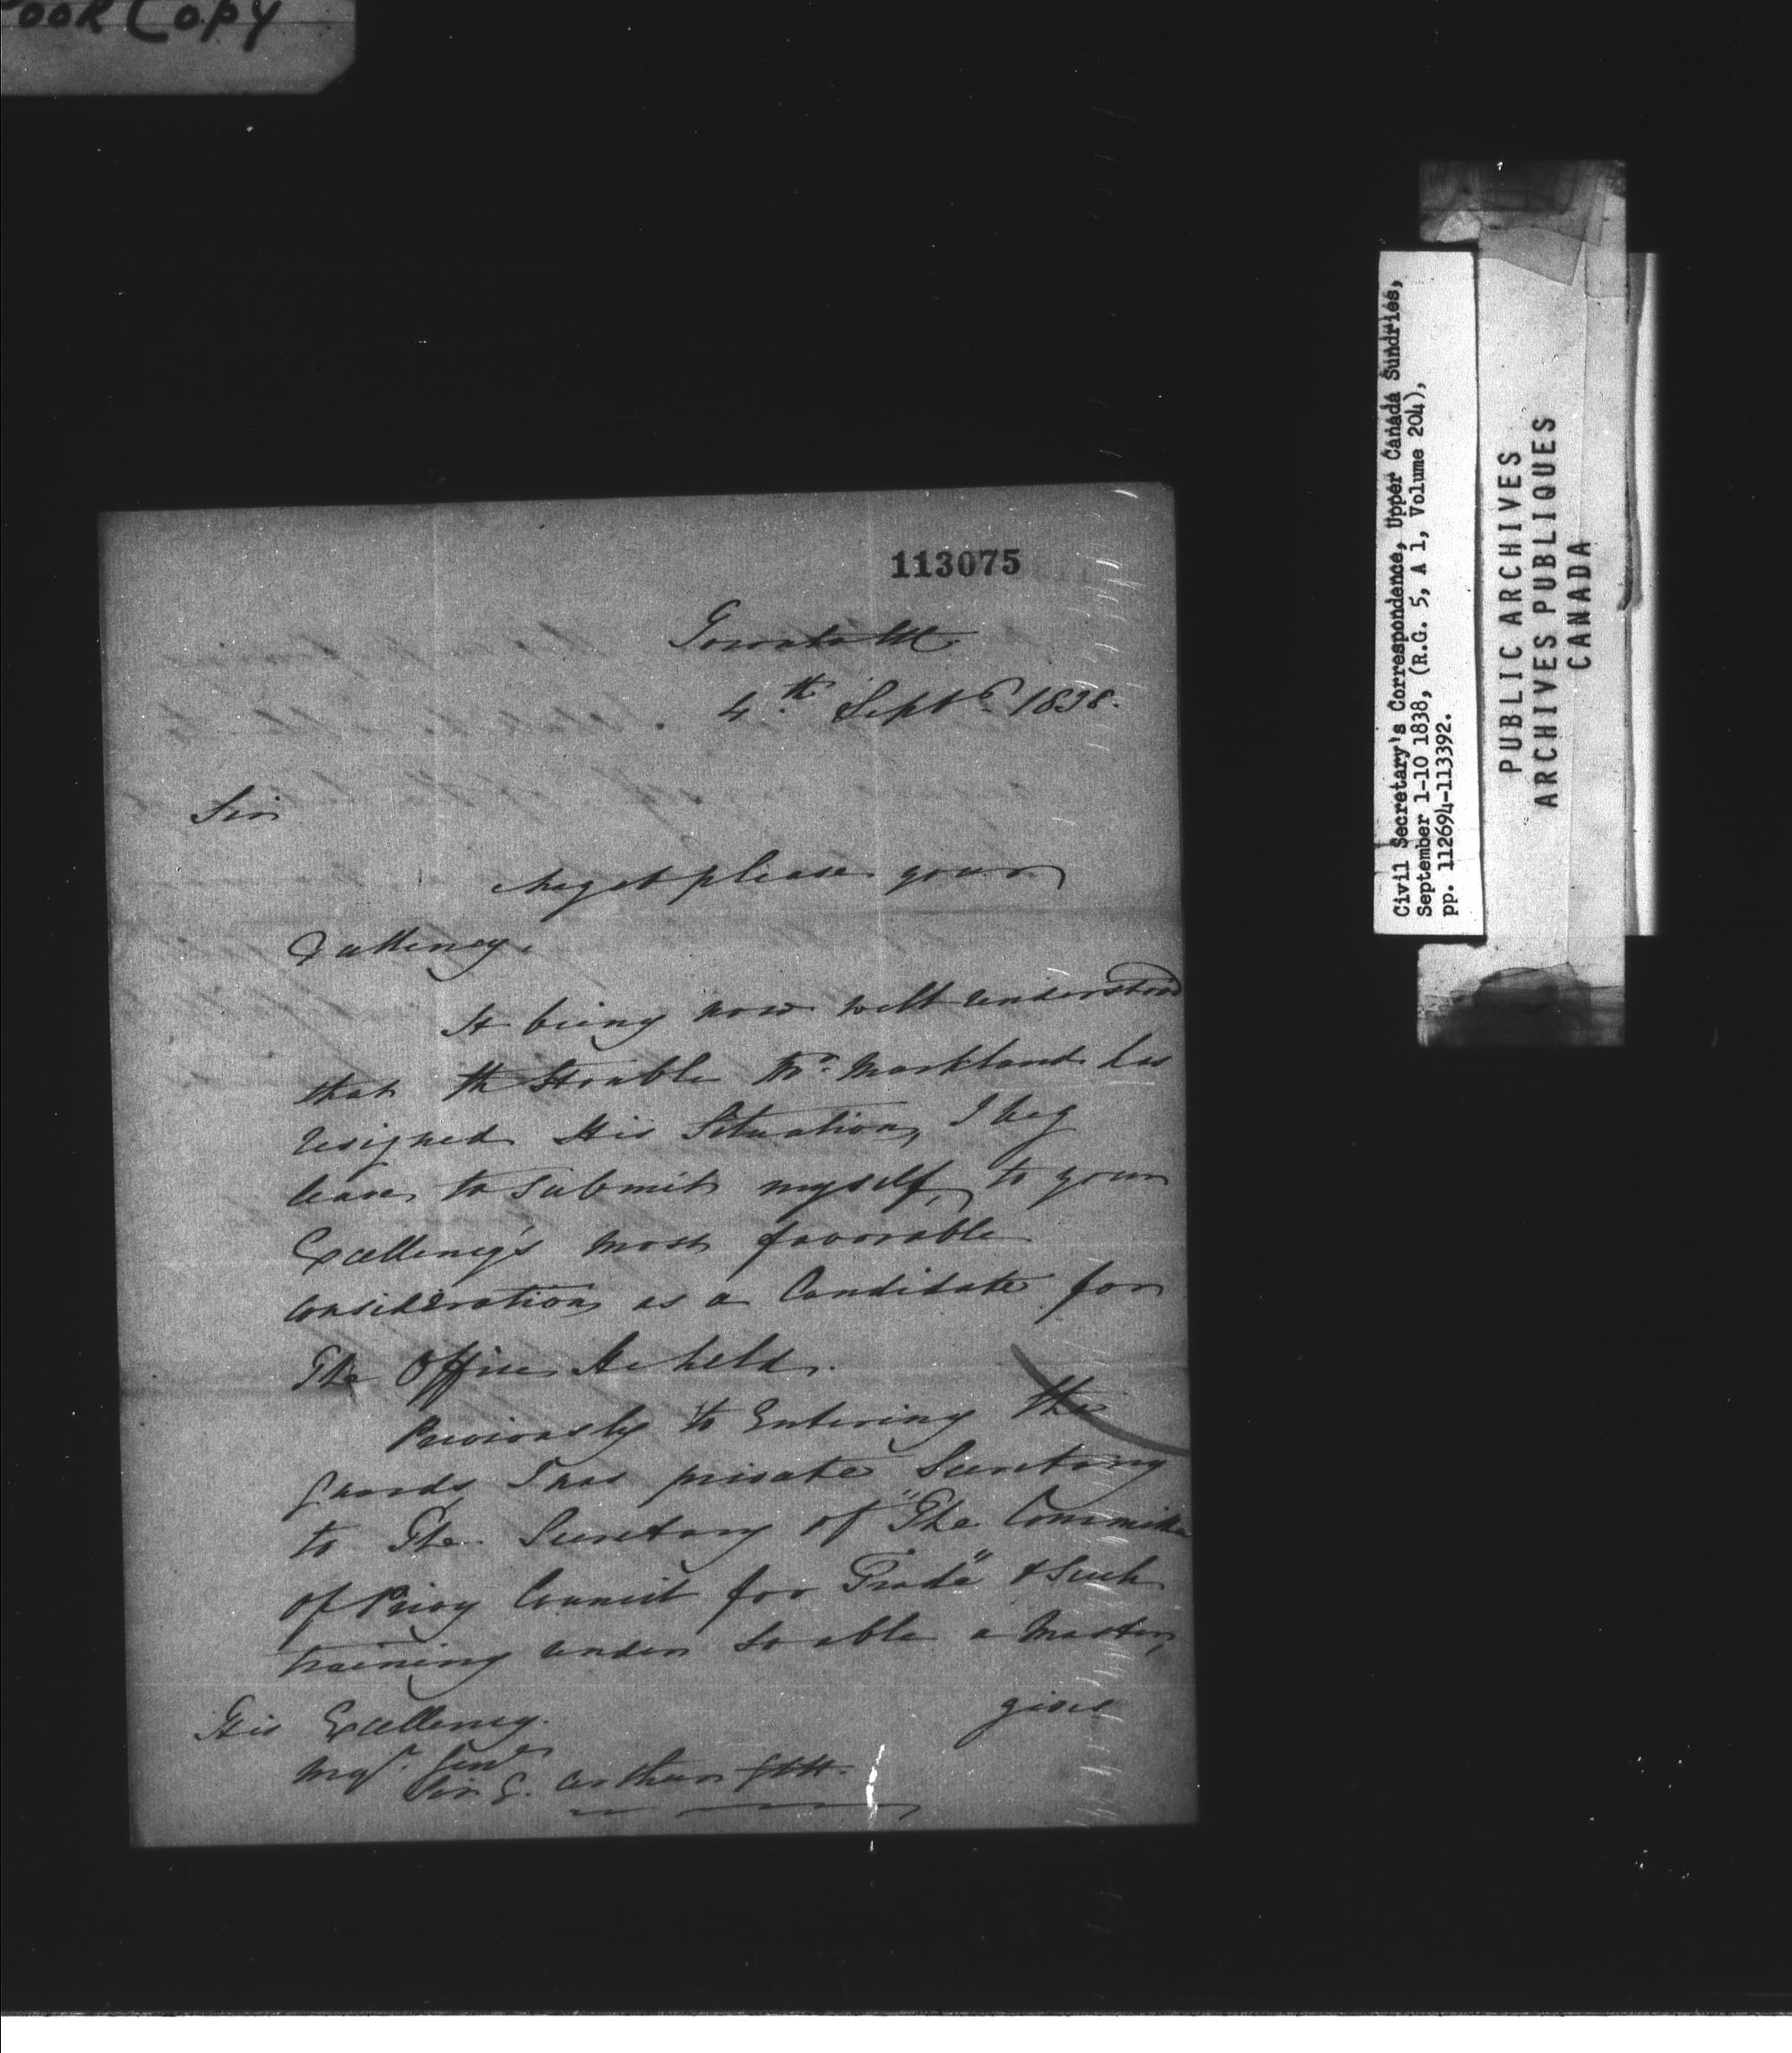 Poor Copy
113075
Toronto
4th Septr 1838.
Sir
May it please your
Excellency.
It being now well understood
that the Honble Mr Markland has
resigned His Situation, I beg
leave to submit myself, to your
Excellency's most favorable
consideration as a Candidate for
The Office He held.
Previously to Entering the
Guards I was private Secretary
to The Secretary of "The Committee
of Privy Council for Trade" & such
training under so able a Master,
gives
His Excellency.
Majr Genl
Sir G. Arthur
Civil Secretary's Correspondence, Upper Canada Sundries,
September 1-10 1838, (R.G. 5, A 1, Volume 204),
pp. 112694-113392.
PUBLIC ARCHIVES
ARCHIVES PUBLIQUES
CANADA